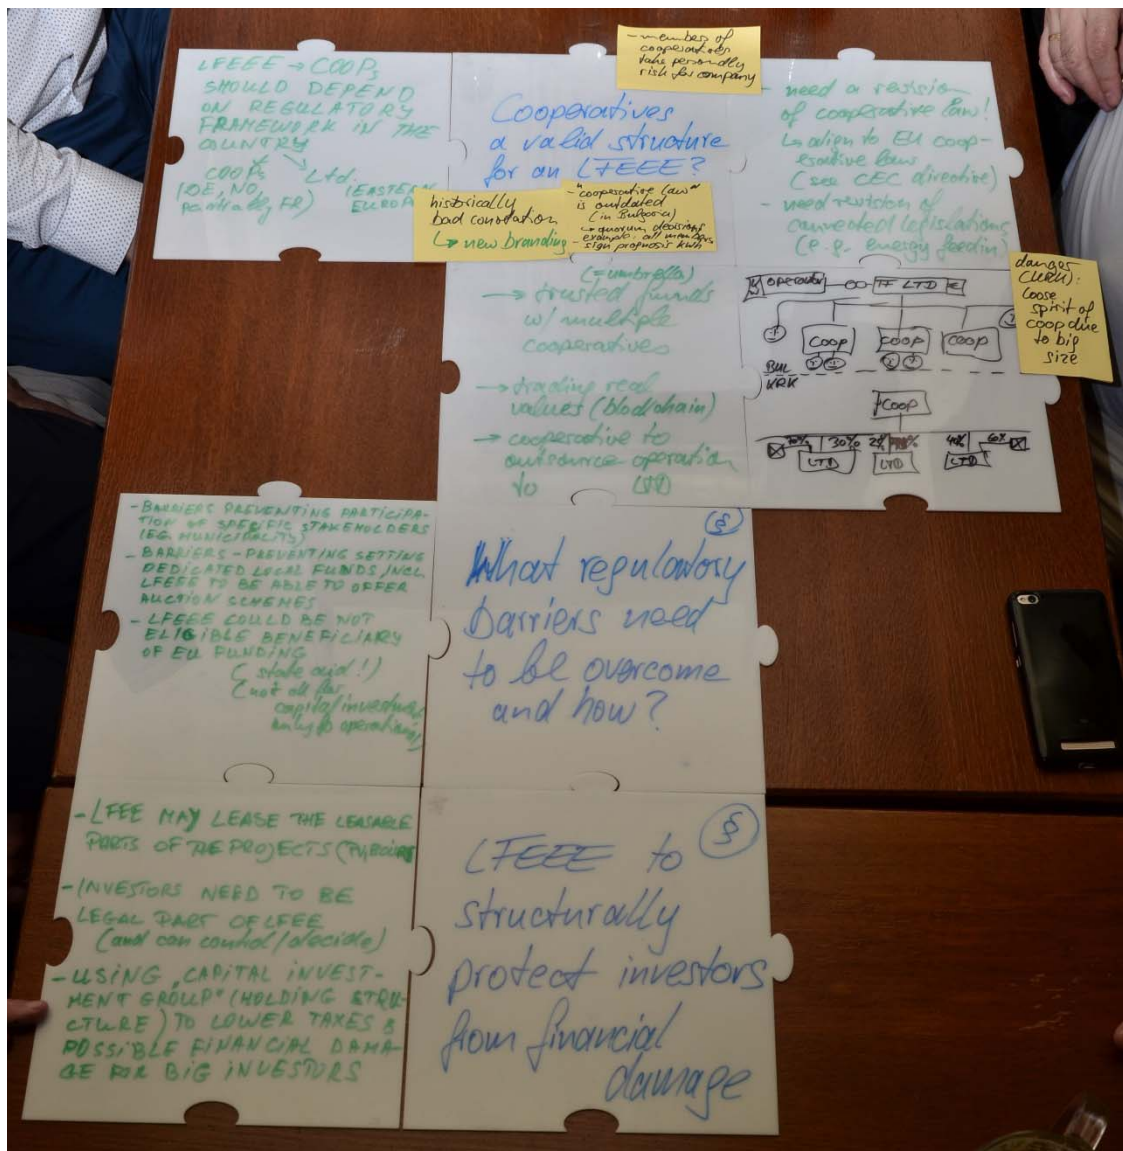 LFEEE → COOPs
SHOULD DEPEND
ON REGULATORY
FRAMEWORK IN THE
COUNTRY
COOPs
Ltd.
(DE, NO,
partially, FR)
(EASTERN
EUROP
- members of
cooperatives
take personally
risk for company
Cooperatives
a valid structure
for an LFEEE?
historically
bad conotation
↳ new branding
- "cooperative law"
is outdated
(in Bulgaria)
↳ quorum decisions
- example: all members
sign prognosis kWh
- need a revision
of cooperative law!
↳ align to EU coop-
erative laws
(see CEC directive)
- need revision of
connected legislations
(e.g. energy feedin)
danger
(UKRK):
loose
spirit of
coop due
to big
size
(=umbrella)
→ trusted funds
w/ multiple
cooperatives
→ trading real
values (blockchain)
→ cooperative to
outsource operation
to LTD
operator
TF LTD
€
coop
coop
coop
BUL
KRK
coop
70%
30%
2%
40%
60%
LTD
LTD
LTD
- BARRIERS PREVENTING PARTICIPA-
TION OF SPECIFIC STAKEHOLDERS
(EG. MUNICIPALITY)
- BARRIERS - PREVENTING SETTING
DEDICATED LOCAL FUNDS, INCL
LFEEE TO BE ABLE TO OFFER
AUCTION SCHEMES
- LFEEE COULD BE NOT
ELIGIBLE BENEFICIARY
OF EU FUNDING
(state aid!)
(not all for
capital investment,
only to operations!)
§
What regulatory
barriers need
to be overcome
and how?
- LFEE MAY LEASE THE LEASABLE
PARTS OF THE PROJECTS
- INVESTORS NEED TO BE
LEGAL PART OF LFEE
(and can control/decide)
- USING „CAPITAL INVEST-
MENT GROUP" (HOLDING STRU-
CTURE) TO LOWER TAXES &
POSSIBLE FINANCIAL DAMA-
GE FOR BIG INVESTORS
§
LFEEE to
structurally
protect investors
from financial
damage